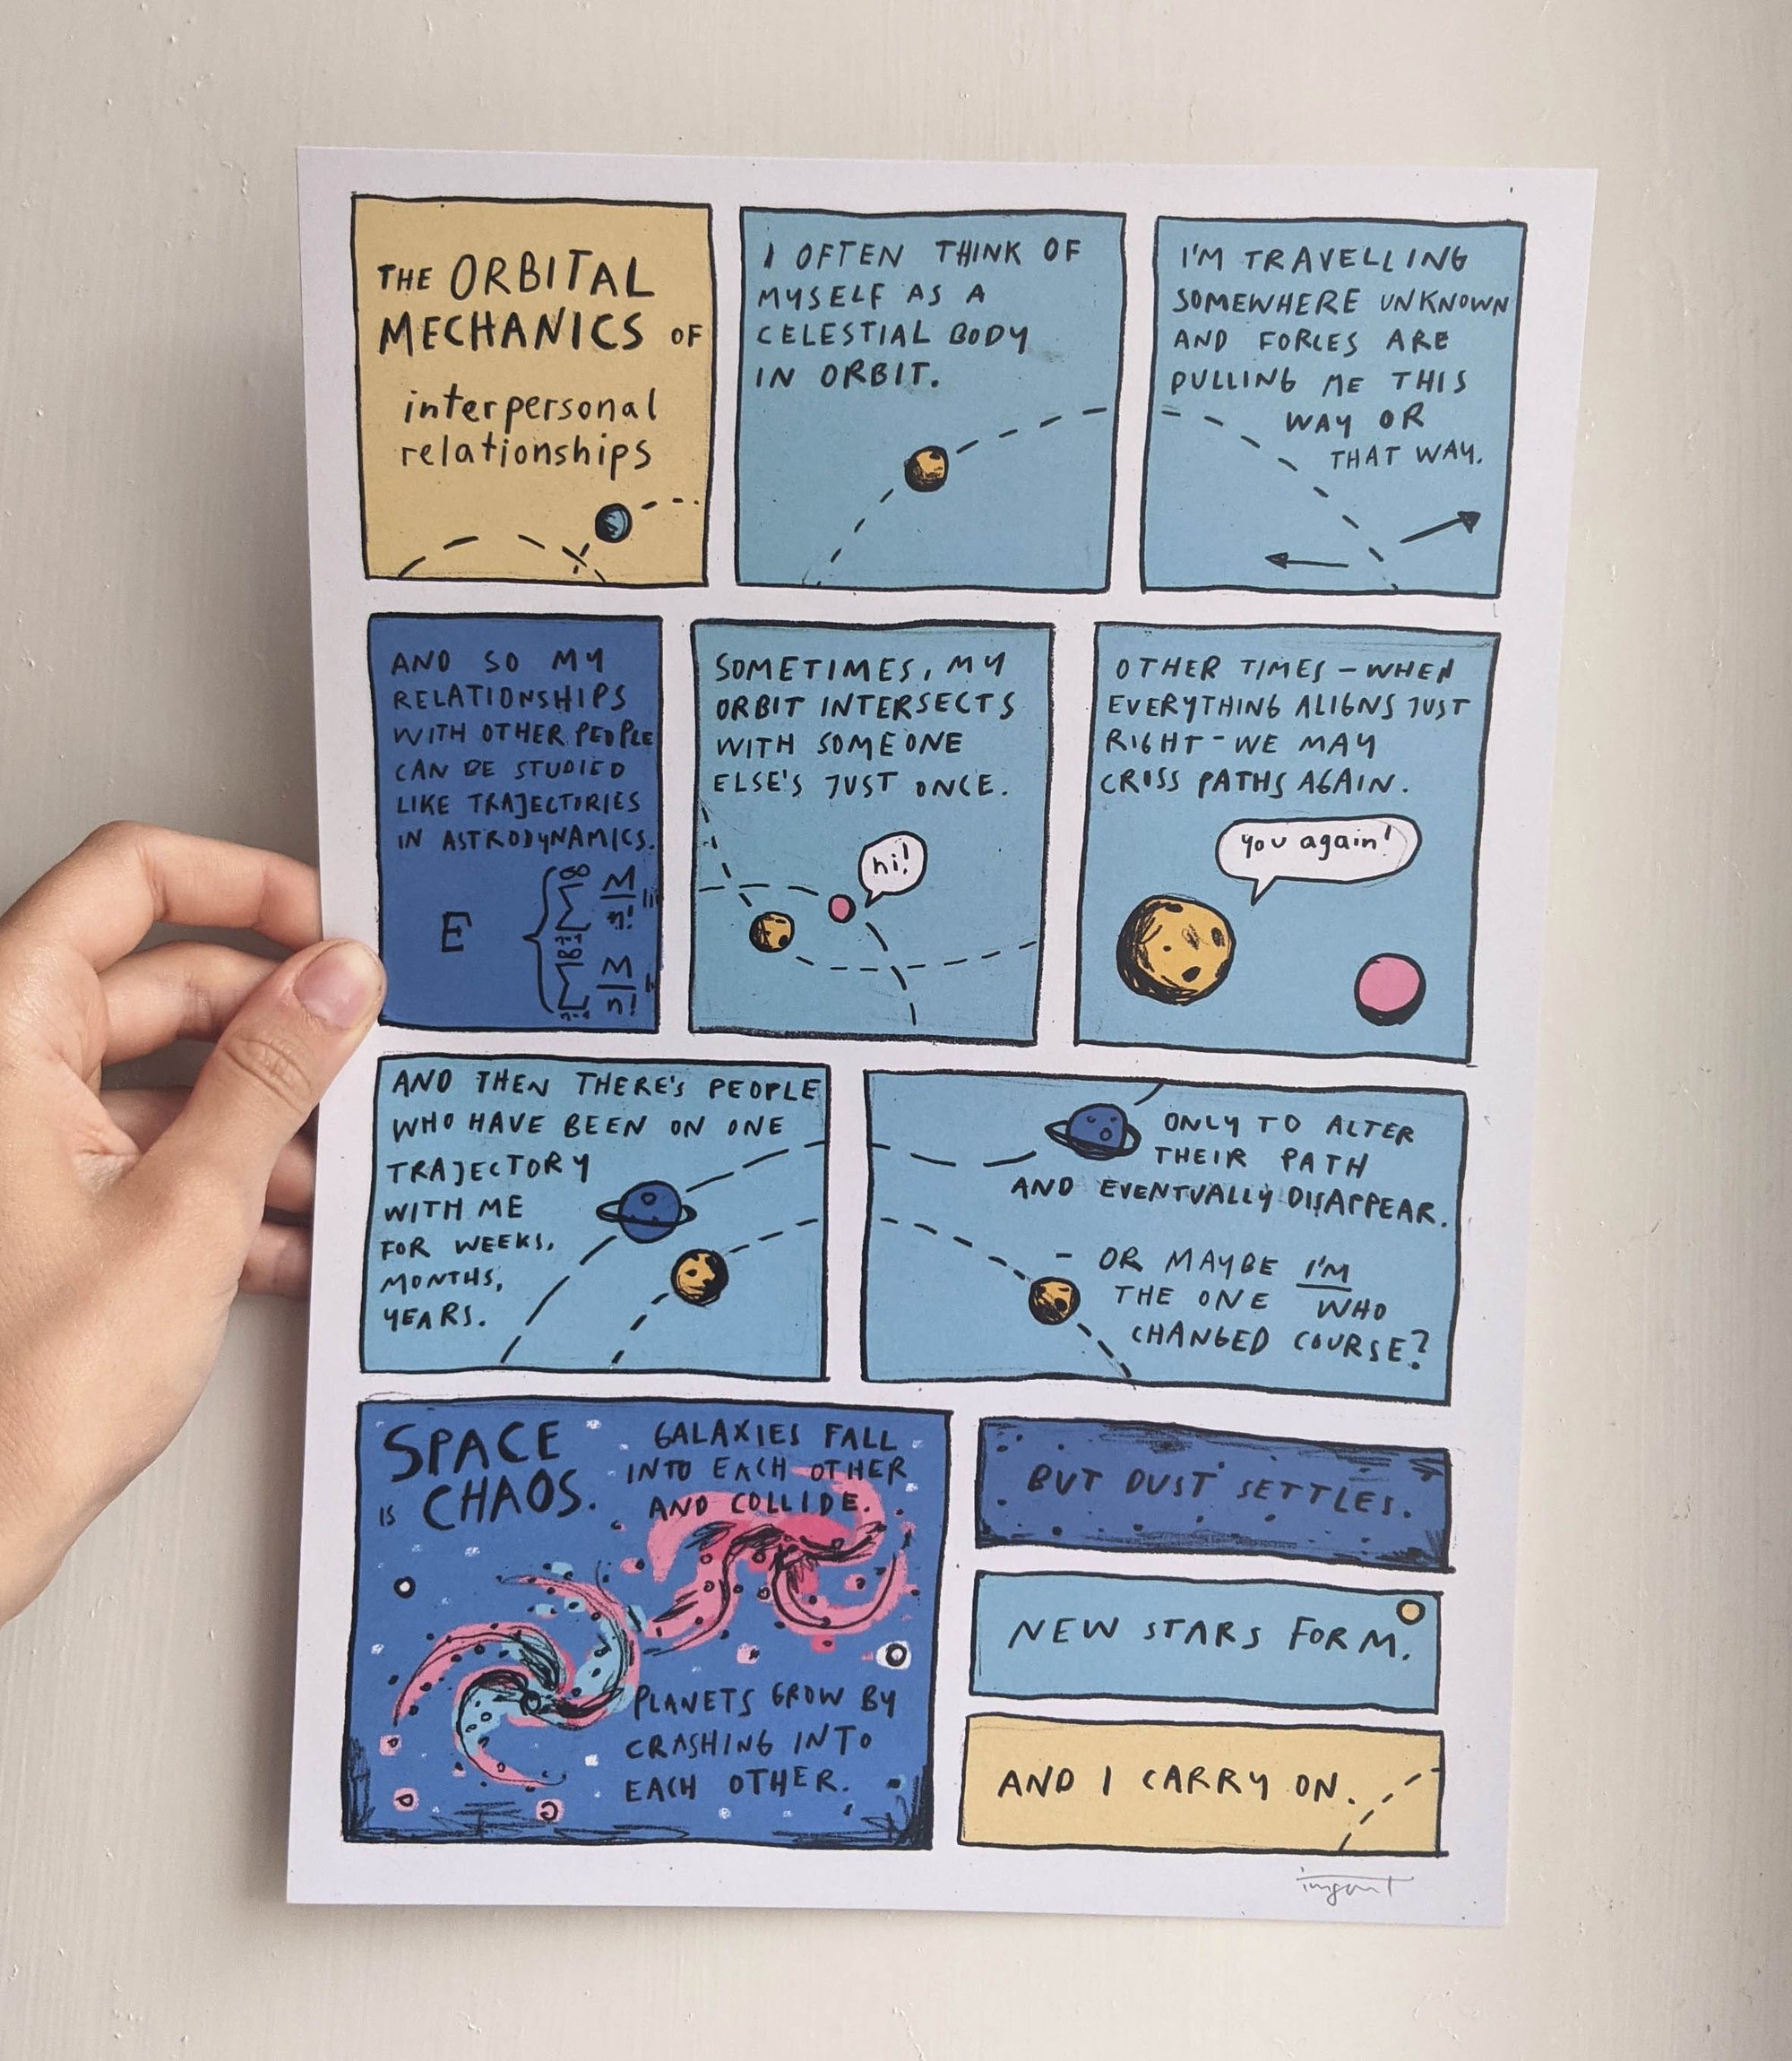 THE ORBITAL
MECHANICS OF
interpersonal
relationships
I OFTEN THINK OF
MYSELF AS A
CELESTIAL BODY
IN ORBIT.
I'M TRAVELLING
SOMEWHERE UNKNOWN
AND FORCES ARE
PULLING ME THIS
WAY OR
THAT WAY.
AND SO MY
RELATIONSHIPS
WITH OTHER PEOPLE
CAN BE STUDIED
LIKE TRAJECTORIES
IN ASTRODYNAMICS.
E
∞
∑ M
n!
∑ M
n=1 n!
SOMETIMES, MY
ORBIT INTERSECTS
WITH SOMEONE
ELSE'S JUST ONCE.
hi!
OTHER TIMES – WHEN
EVERYTHING ALIGNS JUST
RIGHT - WE MAY
CROSS PATHS AGAIN.
you again!
AND THEN THERE'S PEOPLE
WHO HAVE BEEN ON ONE
TRAJECTORY
WITH ME
FOR WEEKS,
MONTHS,
YEARS.
ONLY TO ALTER
THEIR PATH
AND EVENTUALLY DISAPPEAR.
– OR MAYBE I'M
THE ONE WHO
CHANGED COURSE?
SPACE
IS CHAOS.
GALAXIES FALL
INTO EACH OTHER
AND COLLIDE.
PLANETS GROW BY
CRASHING INTO
EACH OTHER.
BUT DUST SETTLES.
NEW STARS FORM.
AND I CARRY ON.